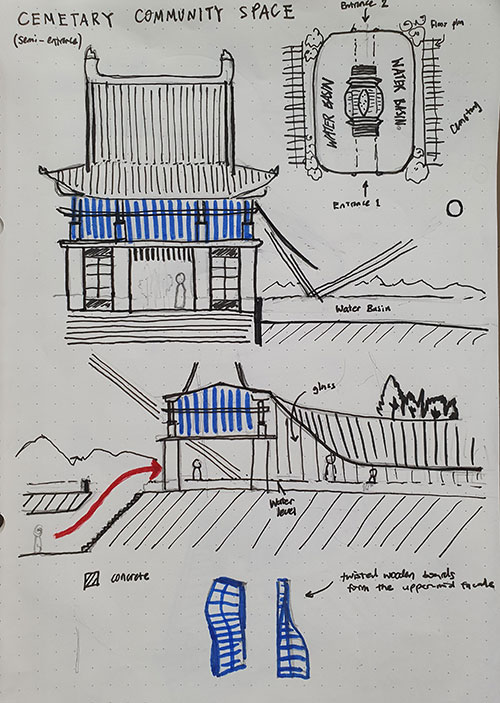 CEMETARY COMMUNITY SPACE
(semi-entrance)
Entrance 2
Floor plan
WATER BASIN
WATER BASIN
Cemetary
Entrance 1
Water Basin
glass
Water
level
concrete
twisted wooden boards
form the upper-mid facade